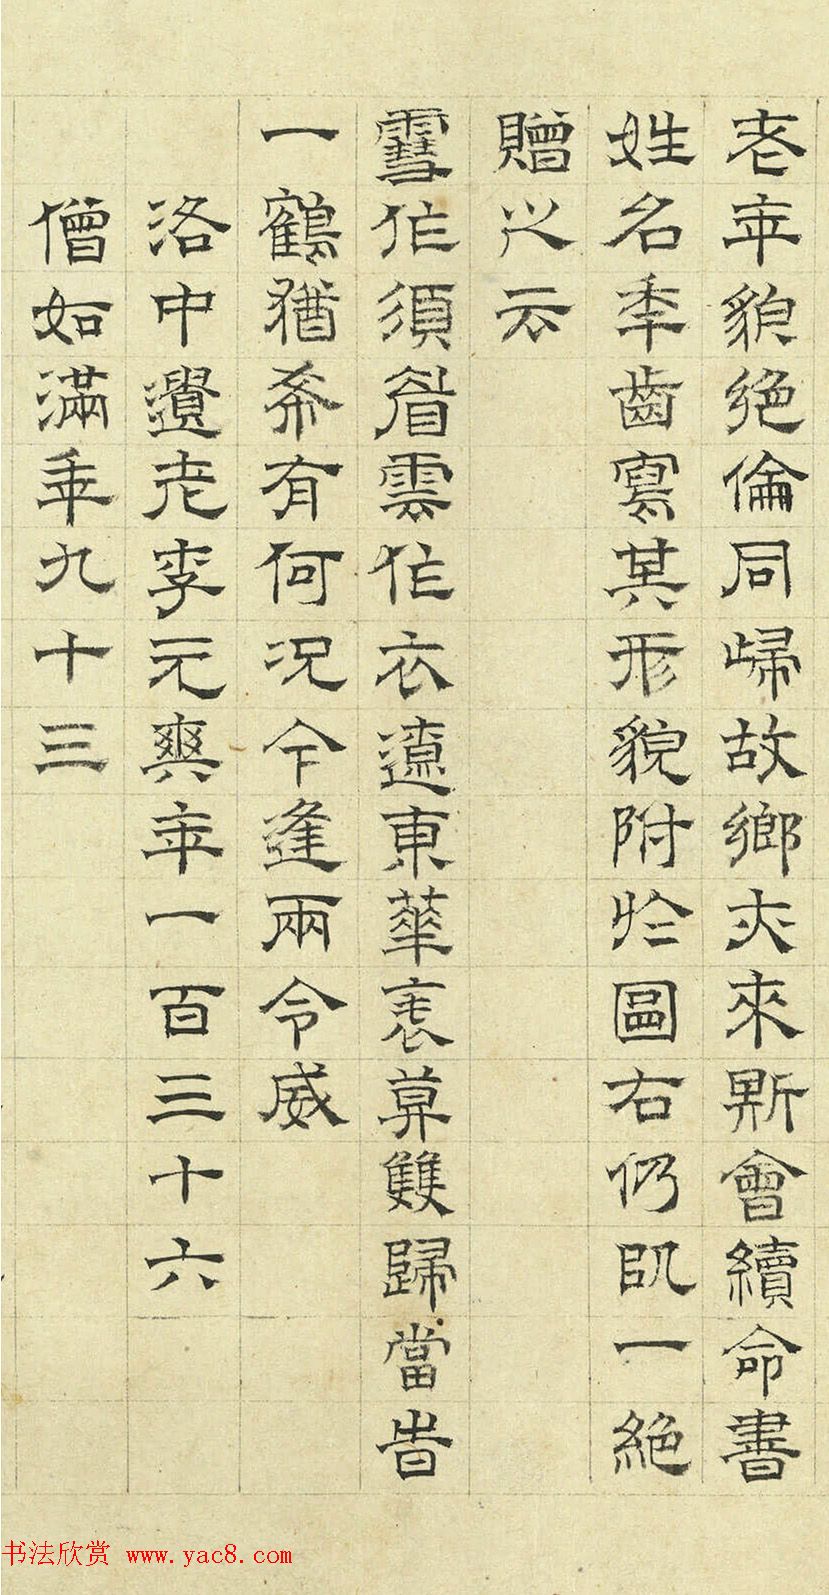 老年貌絕倫同歸故鄉亦來斯會續命書
姓名秊齒寫其形貌附於圖右仍以一絕
贈之云
雪作須眉雲作衣遼東華表莫雙歸當旹
一鶴猶希有何況今逢兩令威
洛中遺老李元爽年一百三十六
僧如滿年九十三
书法欣赏 www.yac8.com